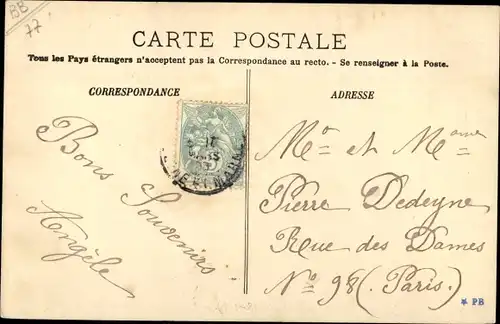 BB
77
CARTE POSTALE
Tous les Pays étrangers n'acceptent pas la Correspondance au recto. - Se renseigner à la Poste.
CORRESPONDANCE
ADRESSE
Bons Souvenirs
Angèle
Mr et Mme
Pierre Dedeyne
Rue des Dames
No 98 (Paris.)
PB